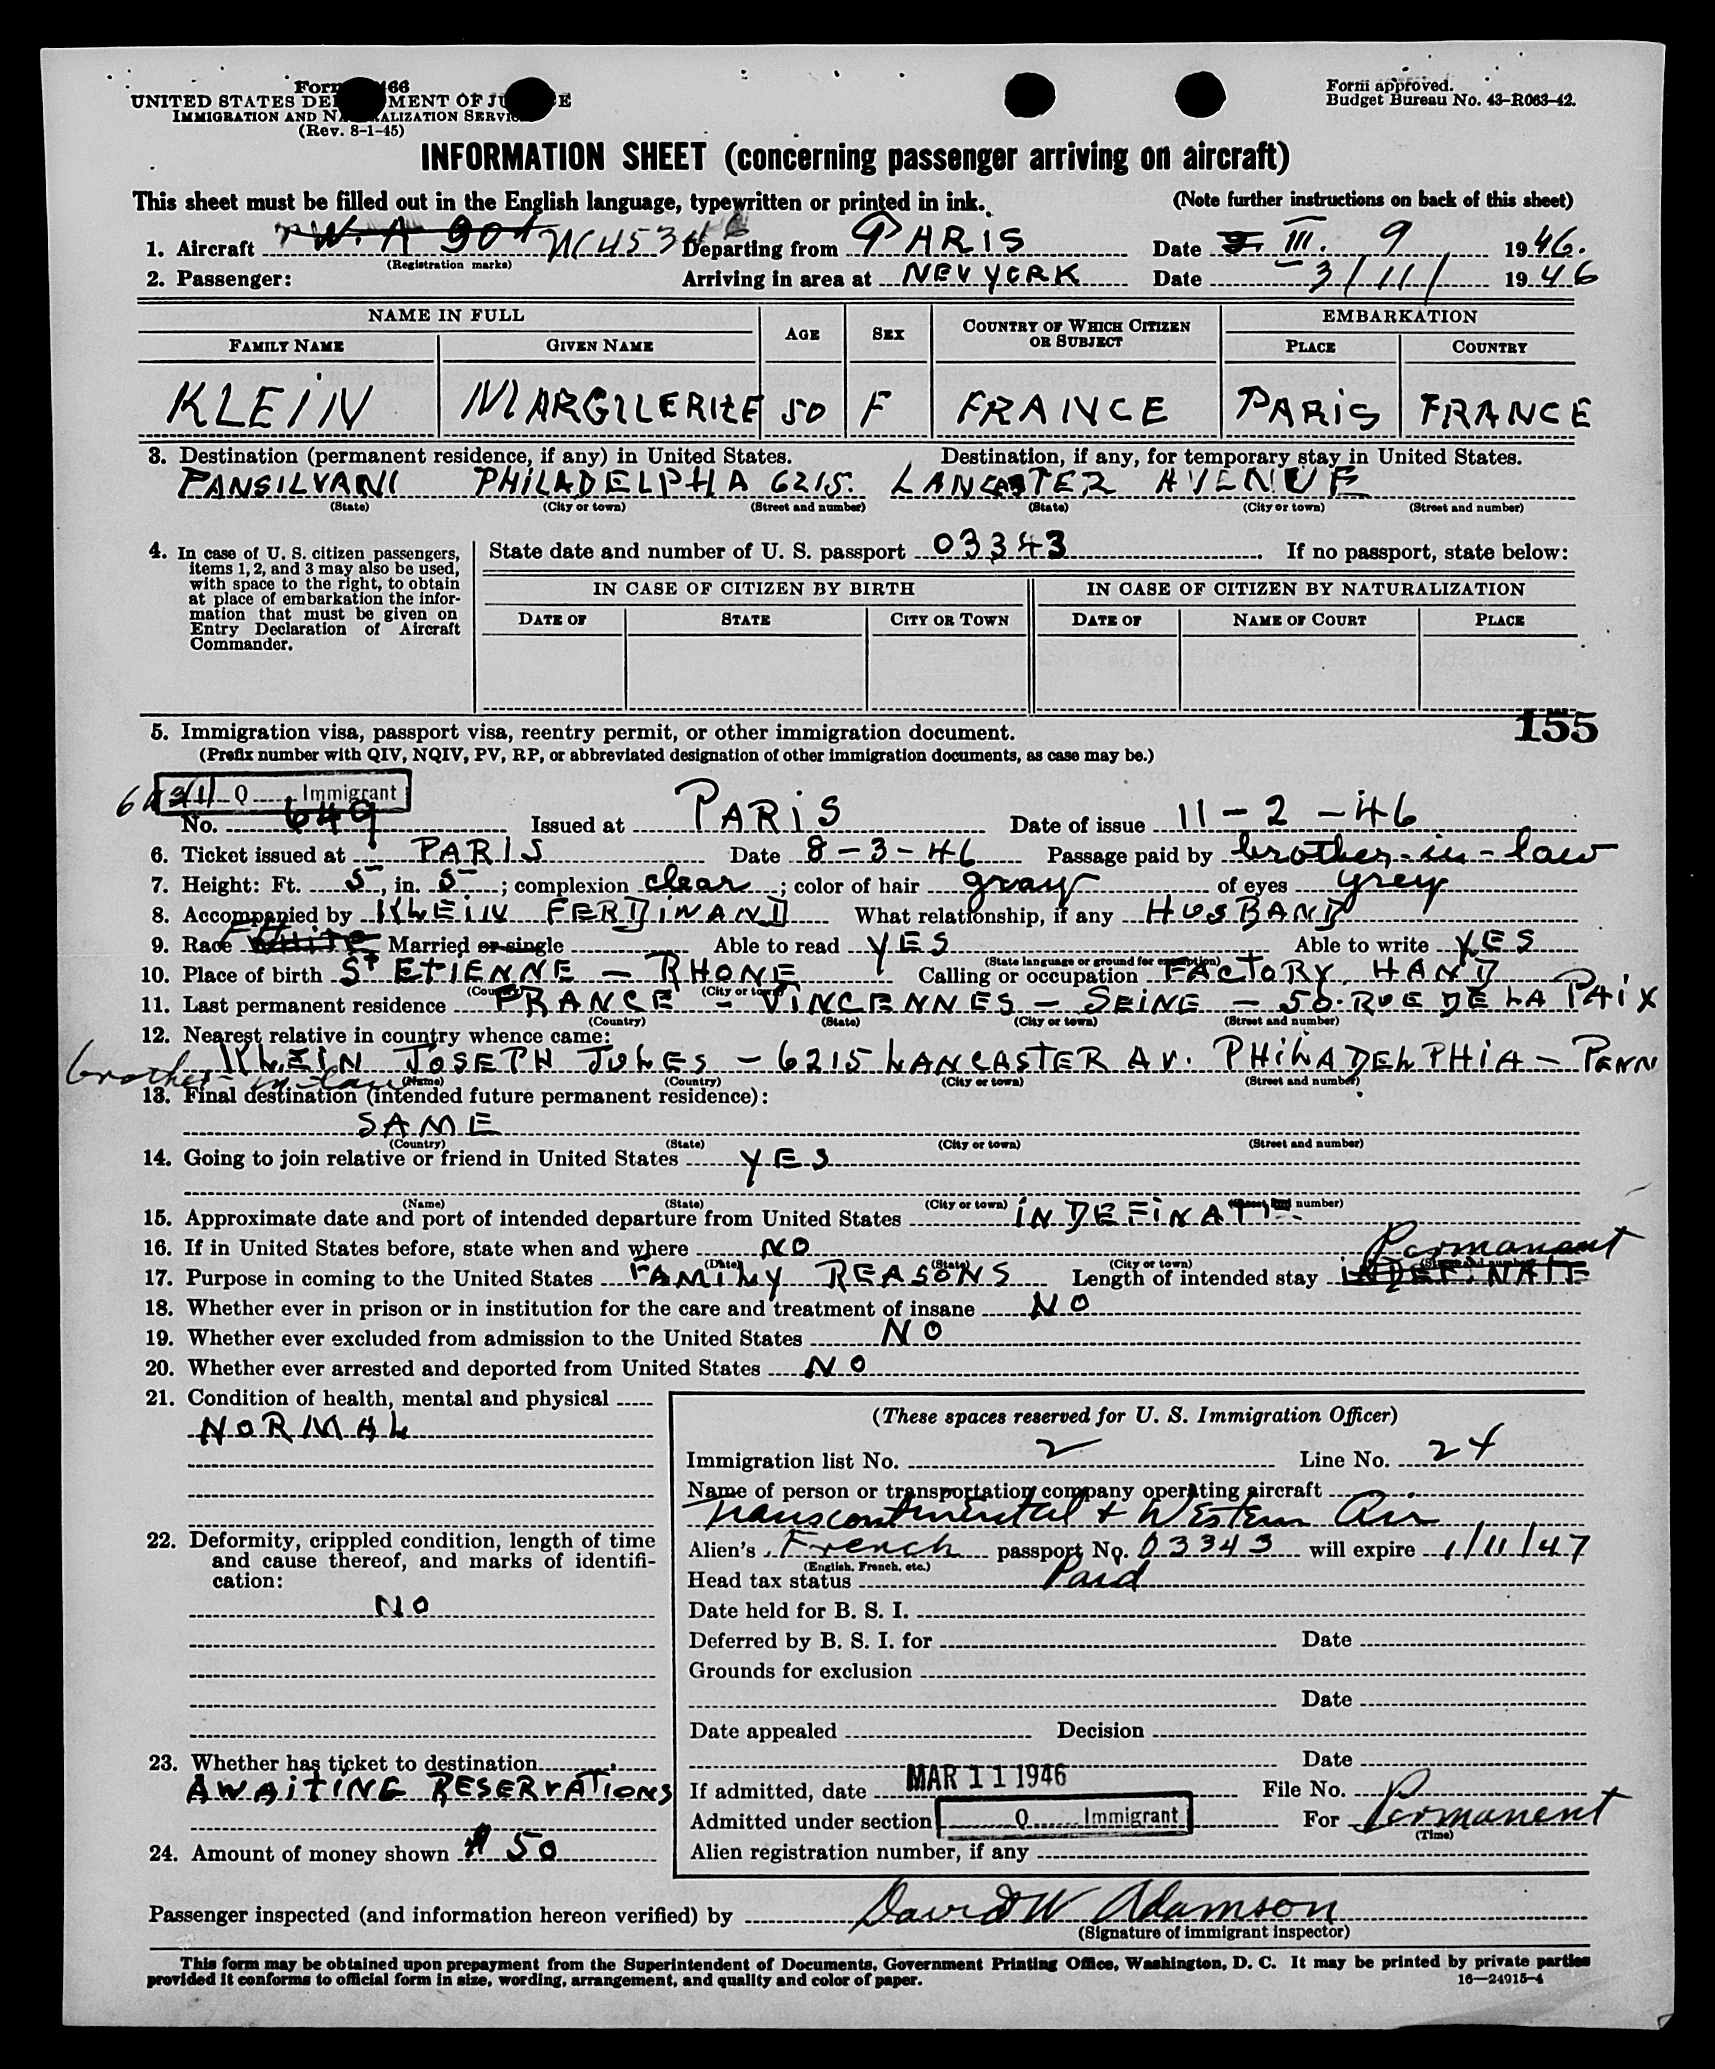 Form 466
UNITED STATES DE MENT OF JU E
IMMIGRATION AND NA ALIZATION SERVI
(Rev. 8-1-45)
Form approved.
Budget Bureau No. 43-R063-42.
INFORMATION SHEET (concerning passenger arriving on aircraft)
This sheet must be filled out in the English language, typewritten or printed in ink. (Note further instructions on back of this sheet)
1. Aircraft Departing from PARIS Date III. 9 1946.
(Registration marks)
2. Passenger: Arriving in area at NEV YORK Date 3/11/ 1946
NAME IN FULL AGE SEX COUNTRY OF WHICH CITIZEN OR SUBJECT EMBARKATION
FAMILY NAME GIVEN NAME PLACE COUNTRY
KLEIN MARGUERITE 50 F FRANCE PARIS FRANCE
3. Destination (permanent residence, if any) in United States. Destination, if any, for temporary stay in United States.
PANSILVANI PHILADELPHA 6215. LANCASTER AVENUE
(State) (City or town) (Street and number) (State) (City or town) (Street and number)
4. In case of U. S. citizen passengers, items 1, 2, and 3 may also be used, with space to the right, to obtain at place of embarkation the information that must be given on Entry Declaration of Aircraft Commander.
State date and number of U. S. passport 03343 If no passport, state below:
IN CASE OF CITIZEN BY BIRTH IN CASE OF CITIZEN BY NATURALIZATION
DATE OF STATE CITY OR TOWN DATE OF NAME OF COURT PLACE
155
5. Immigration visa, passport visa, reentry permit, or other immigration document.
(Prefix number with QIV, NQIV, PV, RP, or abbreviated designation of other immigration documents, as case may be.)
Q Immigrant
No. 649 Issued at PARIS Date of issue 11-2-46
6. Ticket issued at PARIS Date 8-3-46 Passage paid by brother-in-law
7. Height: Ft. 5, in. 5; complexion clear; color of hair gray of eyes grey
8. Accompanied by KLEIN FERDINAND What relationship, if any HUSBAND
9. Race White Married or single Able to read YES Able to write YES
(State language or ground for exemption)
10. Place of birth St ETIENNE - RHONE Calling or occupation FACTORY HAND
(Country) (City or town)
11. Last permanent residence FRANCE - VINCENNES - SEINE - 50. RUE DE LA PAIX
(Country) (State) (City or town) (Street and number)
12. Nearest relative in country whence came:
KLEIN JOSEPH JULES - 6215 LANCASTER AV. PHILADELPHIA - PENN
brother-in-law
(Name) (Country) (City or town) (Street and number)
13. Final destination (intended future permanent residence):
SAME
(Country) (State) (City or town) (Street and number)
14. Going to join relative or friend in United States YES
(Name) (State) (City or town) number)
15. Approximate date and port of intended departure from United States INDEFINATE
16. If in United States before, state when and where NO
(Date) (State) (City or town)
Permanent
17. Purpose in coming to the United States FAMILY REASONS Length of intended stay INDEFINATE
18. Whether ever in prison or in institution for the care and treatment of insane NO
19. Whether ever excluded from admission to the United States NO
20. Whether ever arrested and deported from United States NO
21. Condition of health, mental and physical
NORMAL
22. Deformity, crippled condition, length of time and cause thereof, and marks of identification:
NO
23. Whether has ticket to destination
AWAITING RESERVATIONS
24. Amount of money shown $ 50
(These spaces reserved for U. S. Immigration Officer)
Immigration list No. 2 Line No. 24
Name of person or transportation company operating aircraft
Transcontinental & Western Air
Alien's French passport No. 03343 will expire 1/11/47
(English, French, etc.)
Head tax status Paid
Date held for B. S. I.
Deferred by B. S. I. for Date
Grounds for exclusion
Date
Date appealed Decision
Date
If admitted, date MAR 11 1946 File No.
Admitted under section Q Immigrant For Permanent
(Time)
Alien registration number, if any
Passenger inspected (and information hereon verified) by David W Adamson
(Signature of immigrant inspector)
This form may be obtained upon prepayment from the Superintendent of Documents, Government Printing Office, Washington, D. C. It may be printed by private parties
provided it conforms to official form in size, wording, arrangement, and quality and color of paper. 16—24915-4